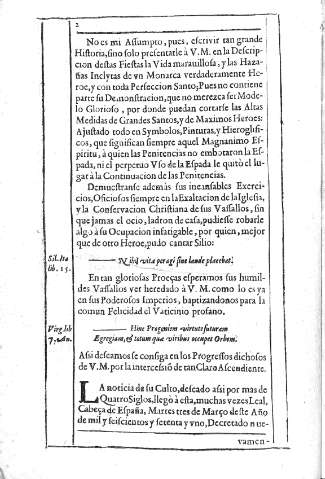 2
No es mi Assumpto, pues, escrivir tan grande
Historia, sino solo presentarle à V. M. en la Descrip-
cion destas Fiestas la Vida maravillosa, y las Haza-
ñas Inclytas de un Monarca verdaderamente He-
roe, y con toda Perfeccion Santo; Pues no contiene
parte su Demonstracion, que no merezca ser Mode-
lo Glorioso, por donde puedan cortarse las Altas
Medidas de Grandes Santos, y de Maximos Heroes:
Ajustado todo en Symbolos, Pinturas, y Hieroglifi-
cos, que significan siempre aquel Magnanimo Es-
piritu, à quien las Penitencias no embotaron la Es-
pada, ni el perpetuo Vso de la Espada le quitò el lu-
gar à la Continuacion de las Penitencias.
Demuestranse además sus incansables Exerci-
cios, Oficiosos siempre en la Exaltacion de la Iglesia,
y la Conservacion Christiana de sus Vassallos, sin
que jamas el ocio, ladron de cada, pudiesse robarle
algo à su Ocupacion infatigable, por quien, mejor
que de otro Heroe, pudo cantar Silio:
Sil. Ita
lib. 15.
Nihil vita peragi sine laude placebat.
En tan gloriosas Proeças esperamos sus humil-
des Vassallos ver heredado à V. M. como lo es ya
en sus Poderosos Imperios, baptizandonos para la
comun Felicidad el Vaticinio profano.
Virg. lib
7. Æn.
Hinc Progeniem virtute futuram
Egregiam, et totum quæ viribus occupet Orbem.
Assi deseamos se consiga en los Progressos dichosos
de V. M. por la intercession de tan Claro Ascendiente.
LA noticia de su Culto, deseado assi por mas de
Quatro Siglos, llegò à esta, muchas vezes Leal,
Cabeça de España, Martes tres de Março deste Año
de mil y seiscientos y setenta y vno, Decretado nue-
vamen-